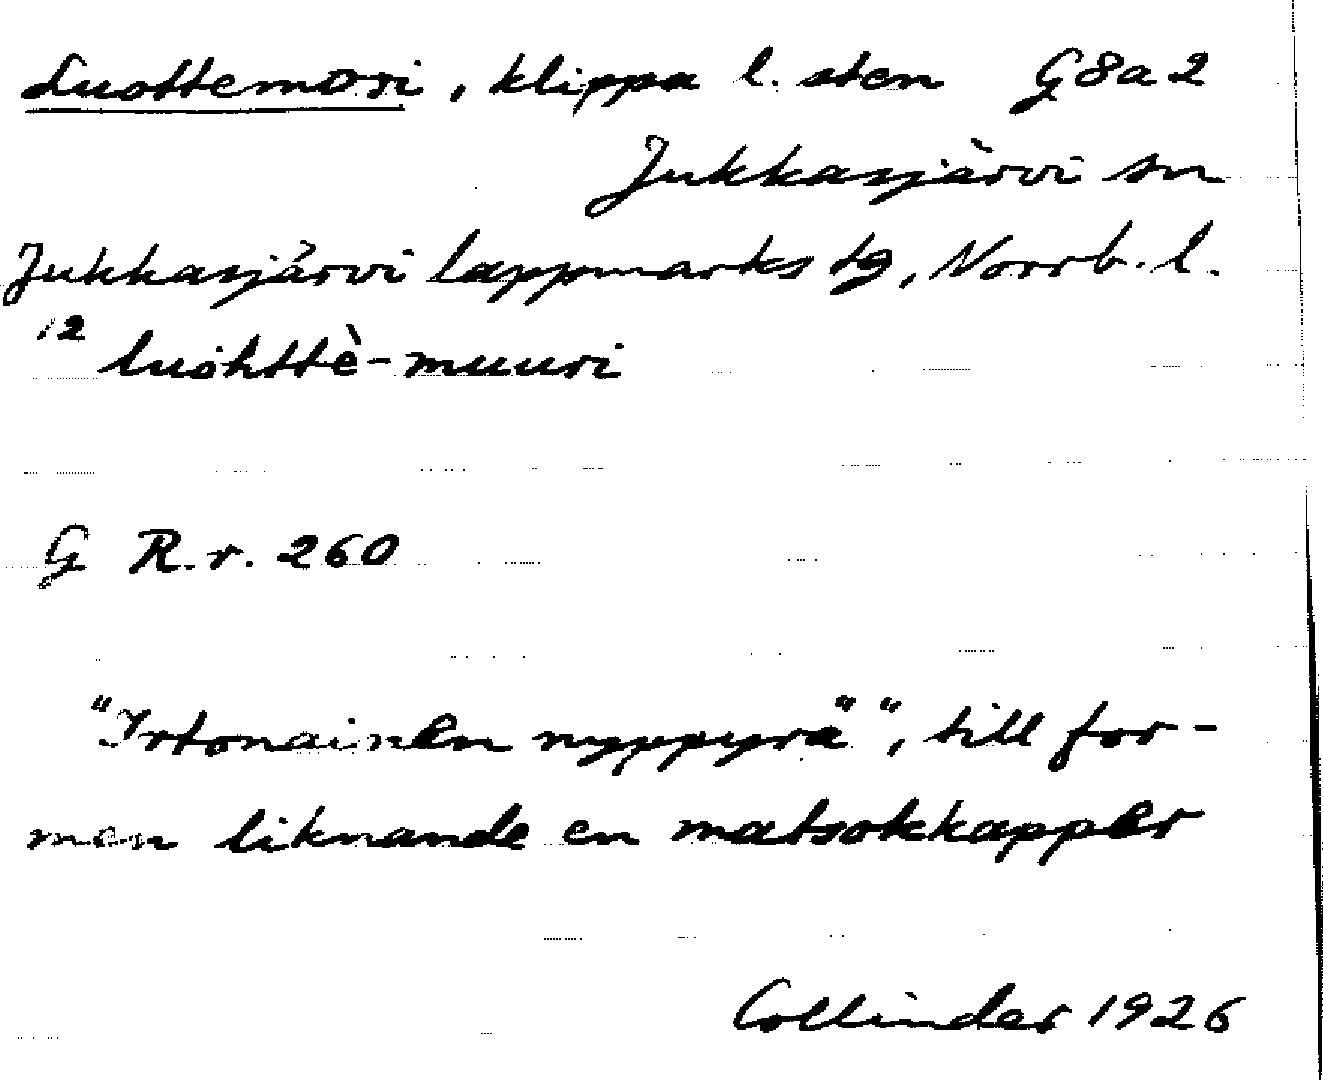 Luottemori, klippa l. sten G8a2
Jukkasjärvi sn
Jukkasjärvi lappmarks tg, Norrb. l.
12 luohttè-muuri
G R.r. 260
"Irtonainen nyppyrä", till for-
men liknande en matsokkapper
Collinder 1926